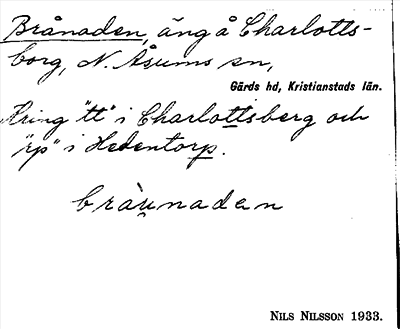 Brånaden, äng å Charlotts-
borg, N. Åsums sn,
Gärds hd, Kristianstads län.
Kring "tt" i Charlottsberg och
"rp" i Hedentorp.
bràu̯naden
NILS NILSSON 1933.